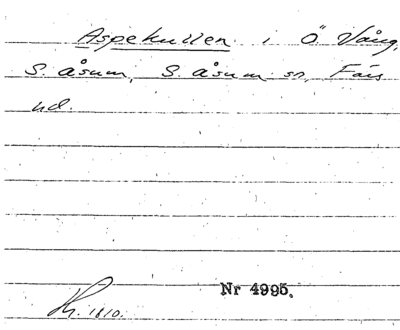 Aspekullen i Ö. Vång,
S. åsum, S. åsum sn, Färs
hd.
Nr 4995.
1810.